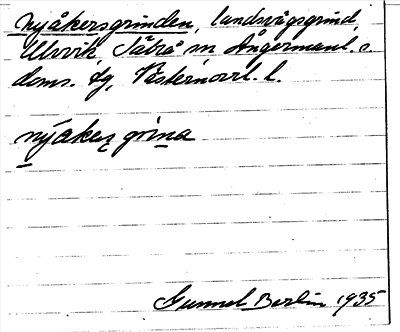 Nyåkersgrinden, landsvägsgrind,
Ulvvik, Säbrå sn Ångermanl. s
doms. fg, Västernorrl. l.
nýåkeꭍ grina
Gunnel Berlin 1935